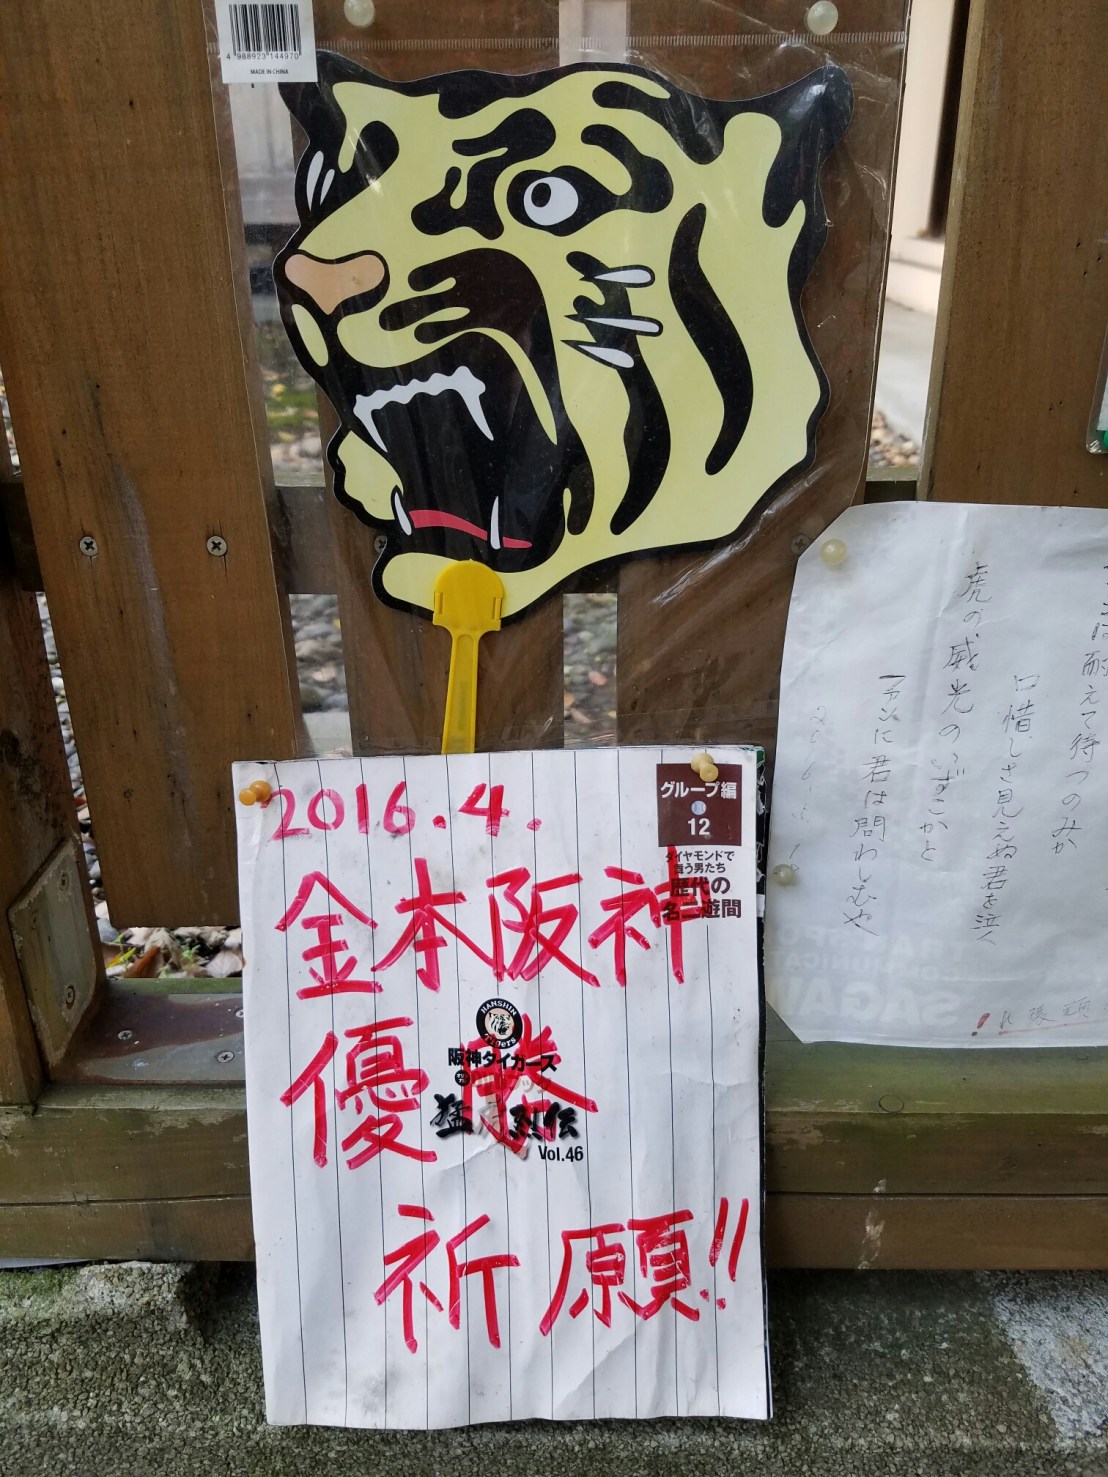 4 988923 144970
MADE IN CHINA
2016.4.
金本阪神
優勝
祈願!!
グループ編
12
ダイヤモンドで
舞う男たち
歴代の
名二遊間
HANSHIN
Tigers
阪神タイガース
猛虎烈伝
Vol.46
耐えて待つのみか
口惜しさ見えぬ君を泣く
虎の威光のいずこかと
ファンに君は問わしむや